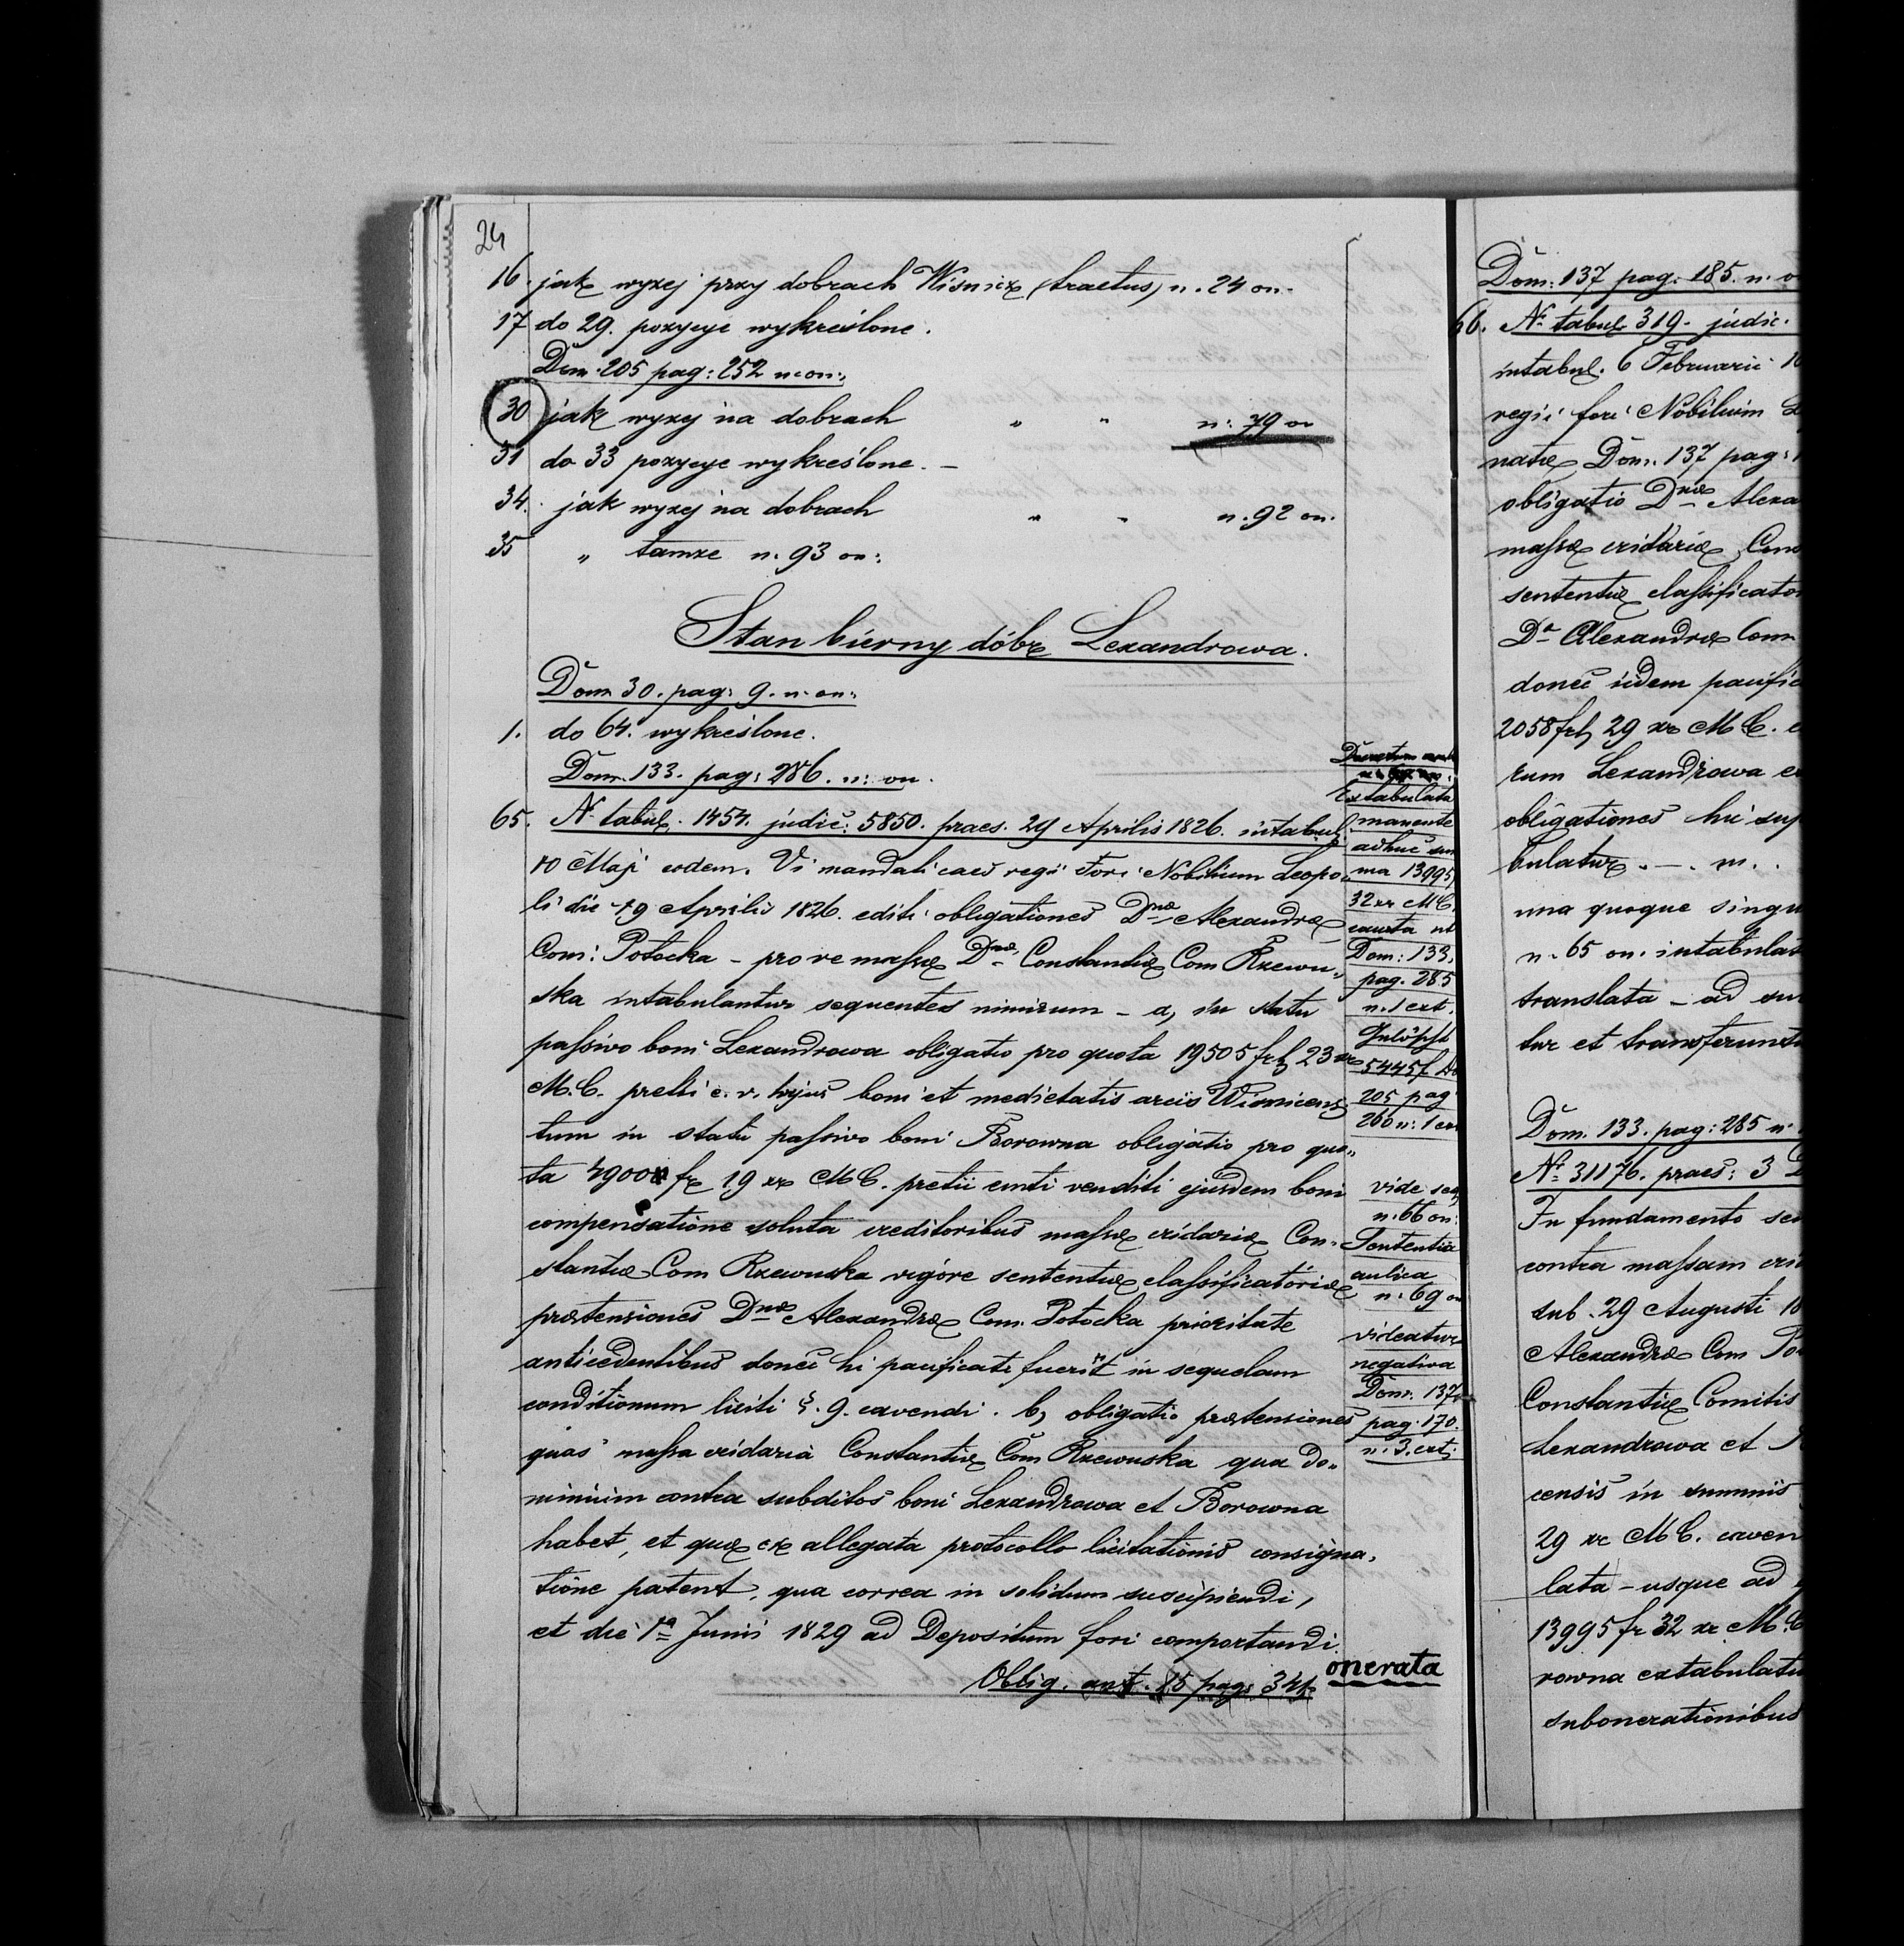 24
16. jak wyżej przy dobrach Wisnicz (tractus) n. 24 on.
17 do 29. pozycye wykreślone.
Dom. 205 pag: 252 n. on:
30 jak wyżej na dobrach " " n: 79 on
31 do 33 pozycye wykreślone. –
34. jak wyżej na dobrach " " n. 92 on.
35 " tamże n. 93 on:
Stan bierny dóbr Lexandrowa.
Dom 30. pag: 9. n. on:
1. do 64. wykreślone.
Dom. 133. pag: 286. n: on.
65. N. tabul. 1454. judic: 5850. praes. 29 Aprilis 1826. intabul.
10 Maji eodem. Vi mandati caes regii Fori Nobilium Leopo-
li die 19 Aprilis 1826. editi obligationes Dnae Alexandrae
Com: Potocka – pro re massae Dnae Constantiae Com Rzewu„
ska intabulantur sequentes nimirum – a, in statu
passivo boni Lexandrowa obligatio pro quota 19505 fr 23 xr
M.C. pretii e. v. hujus boni et medietatis arcis Wisnicens
tum in statu passivo boni Borowna obligatio pro quo„
ta fr 19 xr MC. pretii emti venditi ejusdem boni
compensatione soluta creditoribus massae cridariae Con-
stantiae Com Rzewuska vigore sententiae classificatoriae
praetensiones Dnae Alexandrae Com. Potocka prioritate
anticedentibus donec hi pacificati fuerit in sequelam
conditionum liciti §. 9. cavendi. b, obligatio praetensiones
quas massa cridaria Constantiae Com Rzewuska qua do„
minium contra subditos boni Lexandrowa et Borowna
habet, et quae ex allegata protocollo licitationis consigna„
tione patent, qua correa in solidum suscipiendi,
et die 1a Junii 1829 ad Depositum fori comportandi
Oblig. ant. 85 pag: 344.
Extabulata
manente
adhuc sum
ma 13995
32 xr MC.
Dom: 133.
pag. 285
n. 1 ext.
5445 f
205 pag
260 n: 1 ex
vide seq
n. 66 on:
Sententia
aulica
n. 69 on
videatur
negativa
Dom. 137
pag. 170.
n. 3. ext:
onerata
Dom: 137 pag: 185. n. o
66. N. tabul. 319. judic.
intabul. 6 Februarii 18
regii fori Nobilium L
natae Dom. 137 pag:
obligatio Dnae Alexa
massae cridariae Con
sententiae classificator
Da Alexandrae Com
donec iidem pacific
2058 fr 29 xr MC. e
rum Lexandrowa e
obligationes hic sup
bulatur. – . m.
una quoque singu
n. 65 on. intabulat
translata – ad su
tur et transferunt
Dom. 133. pag: 285 n.
No 31176. praes: 3 D
In fundamento sen
contra massam cri
sub. 29 Augusti 18
Alexandrae Com Po
Constantiae Comitis
Lexandrowa et
censis in summis
29 xr MC. caven
lata – usque ad
13995 fr 32 xr M.C
rowna extabulatu
subonerationibus